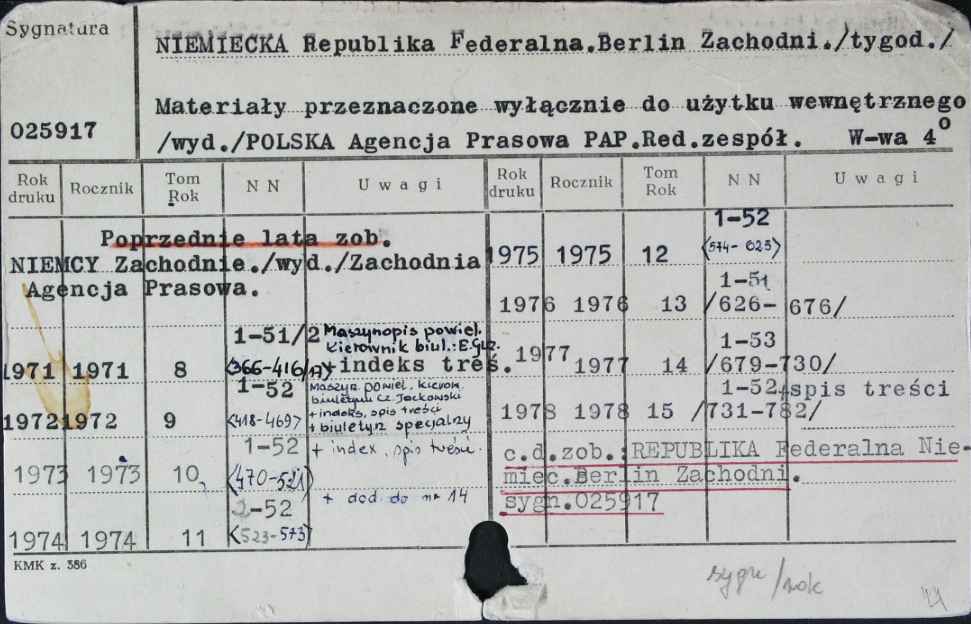 Sygnatura
NIEMIECKA Republika Federalna.Berlin Zachodni./tygod./
Materiały przeznaczone wyłącznie do użytku wewnętrznego
025917
/wyd./POLSKA Agencja Prasowa PAP.Red.zespół. W-wa 4º
Rok druku Rocznik Tom Rok NN Uwagi Rok druku Rocznik Tom Rok NN Uwagi
Poprzednie lata zob.
NIEMCY Zachodnie./wyd./Zachodnia
Agencja Prasowa.
1-51/2 Maszynopis powiel.
Kierownik biul.: E.Guz.
1971 1971 8 (366-416/17) + indeks treś.
1-52 Maszyn. powiel. Kierow.
biuletynu Cz. Jackowski
+ indeks, spis treści
1972 1972 9 <418-469> + biuletyn specjalny
1-52 + index, spis treści.
1973 1973 10, <470-521>
2-52 + dod. do nr 14
1974 1974 11 <523-573>
1-52
1975 1975 12 <574-625>
1-51
1976 1976 13 /626-676/
1-53
1977 1977 14 /679-730/
1-52+spis treści
1978 1978 15 /731-782/
c.d.zob.:REPUBLIKA Federalna Nie-
miec.Berlin Zachodni.
sygn.025917
KMK z. 386
sygn/rok